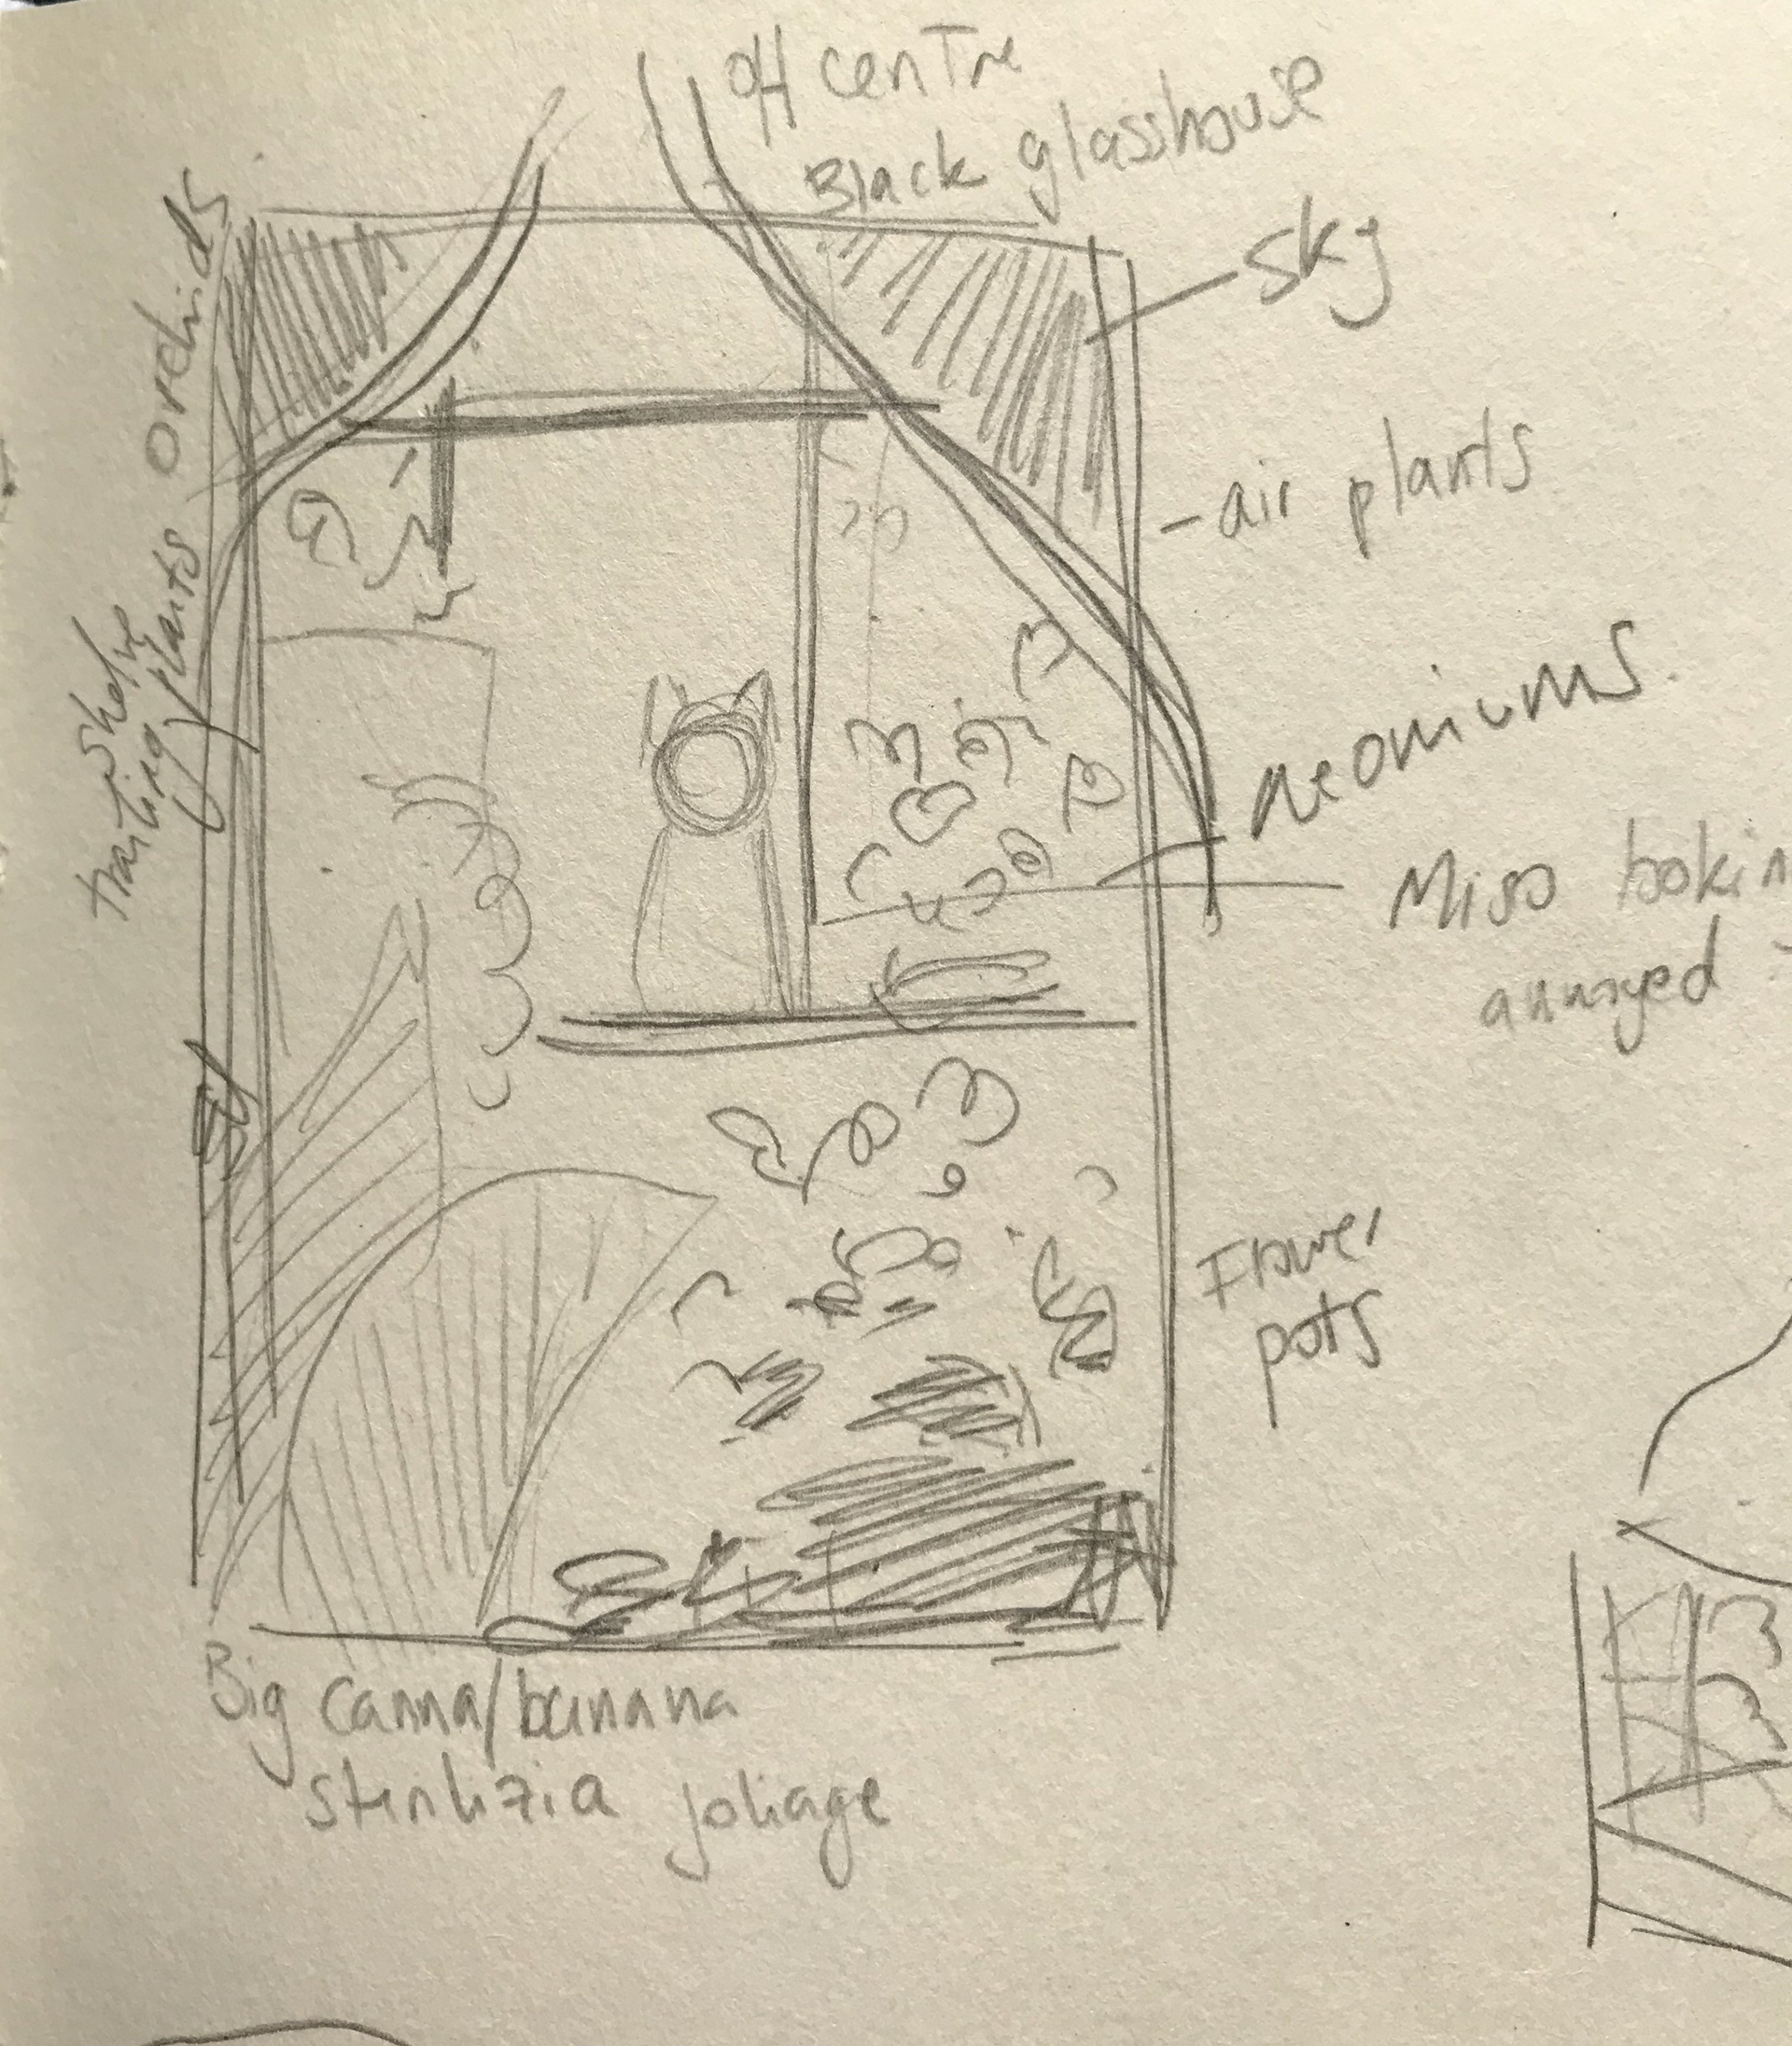 off centre
Black glasshouse
Sky
orchids
- air plants
shelve
trailing plants
aeoniums.
Miso lookin
annoyed
Flower
pots
Big canna/banana
sterlizia foliage